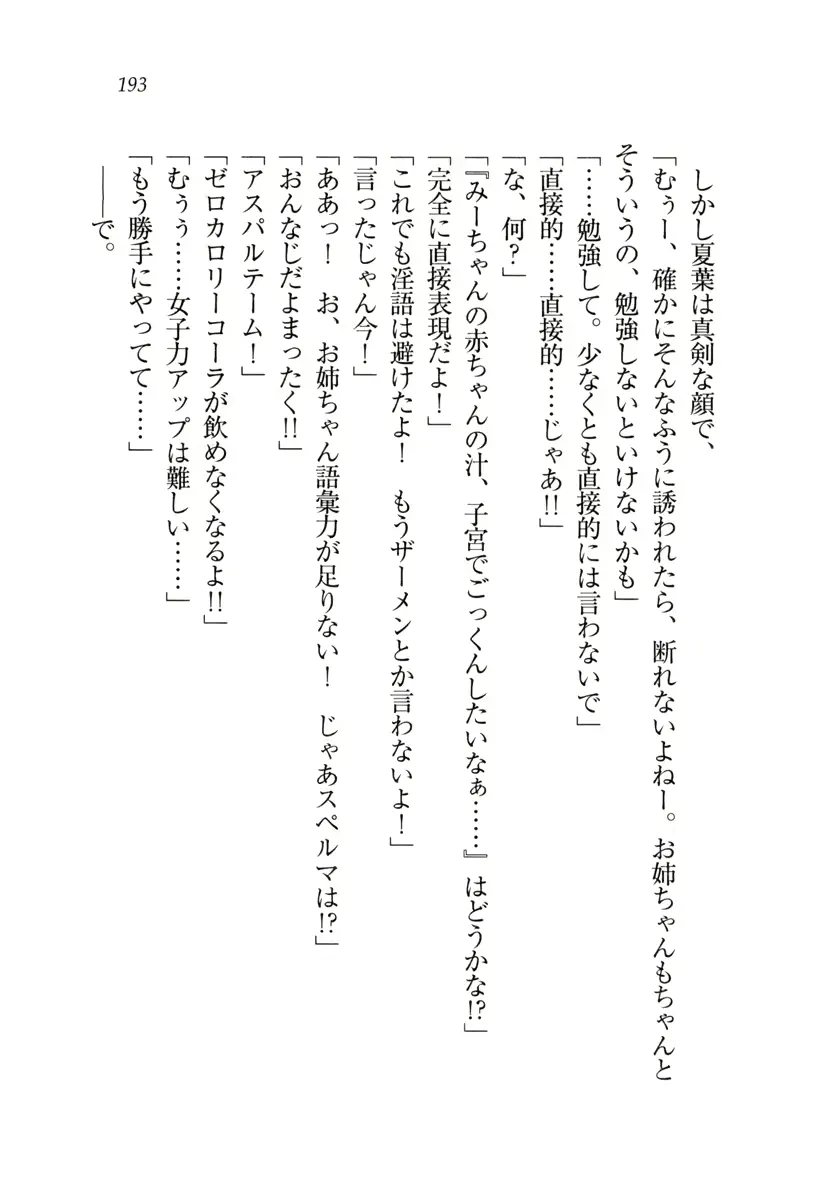 193
しかし夏葉は真剣な顔で、
「むぅー、確かにそんなふうに誘われたら、断れないよねー。お姉ちゃんもちゃんと
そういうの、勉強しないといけないかも」
「……勉強して。少なくとも直接的には言わないで」
「直接的……直接的……じゃあ!!」
「な、何?」
「『みーちゃんの赤ちゃんの汁、子宮でごっくんしたいなぁ……』はどうかな!?」
「完全に直接表現だよ!」
「これでも淫語は避けたよ! もうザーメンとか言わないよ!」
「言ったじゃん今!」
「ああっ! お、お姉ちゃん語彙力が足りない! じゃあスペルマは!?」
「おんなじだよまったく!!」
「アスパルテーム!」
「ゼロカロリーコーラが飲めなくなるよ!!」
「むぅぅ……女子力アップは難しい……」
「もう勝手にやってて……」
――で。